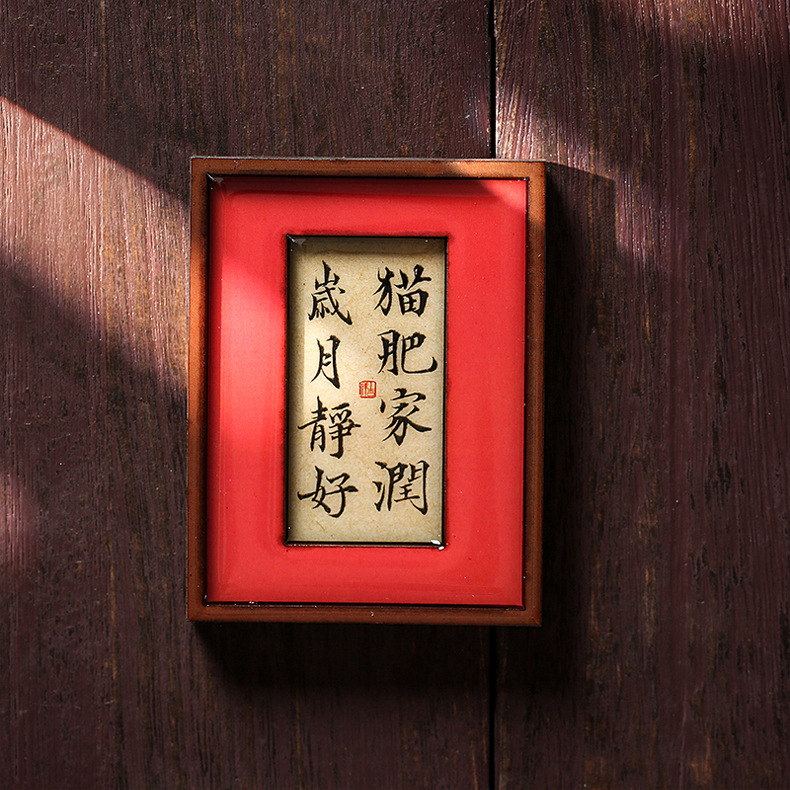 猫肥家潤
歳月靜好